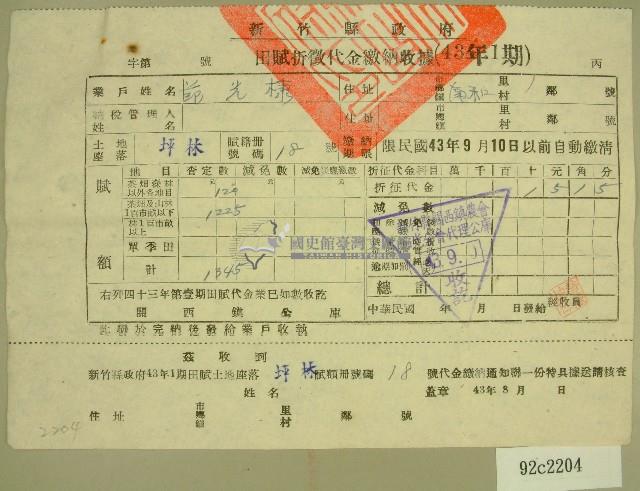 新竹縣政府
字第 號 田賦折徵代金繳納收據(43年1期) 丙
業戶姓名 范光棣 住址 市鄉鎮 南和 里村 鄰 號
納稅管理人姓名 住址 市鄉鎮 里村 鄰 號
土地座落 坪林 賦籍冊號碼 18 號 繳納期限 限民國43年9月10日以前自動繳清
地目 查定數 減免數 減免後應繳數 折征代金科目 萬 千 百 十 元 角 分
賦額
茶畑森林以外各地目 120 折征代金 1 5 1 5
茶畑及山林1百市畝以下 1225 減免數
林1百市畝以上
單季田
計 1345
總計
關西鎮農會
代理公庫
43.9.1
收訖
右列四十三年第壹期田賦代金業已如數收訖
關西鎮公庫
中華民國 年 月 日發給 經收員
此聯於完納後發給業戶收執
國史館臺灣文獻館
TAIWAN HISTORICA
茲收到
新竹縣政府43年1期田賦土地座落 坪林 賦額冊號碼 18 號代金繳納通知聯一份特具據送請核查
姓名 蓋章 43年8月 日
住址 市鄉鎮 里村 鄰 號
2204
92c2204